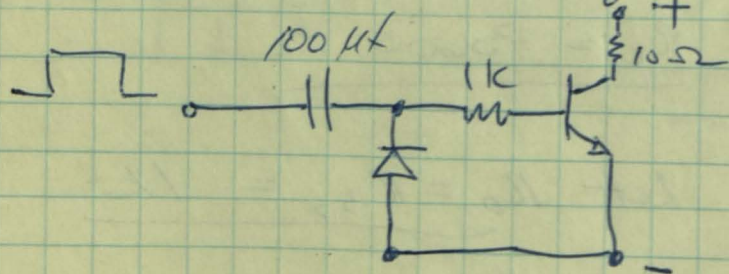 +
100 µf
1K
10Ω
-